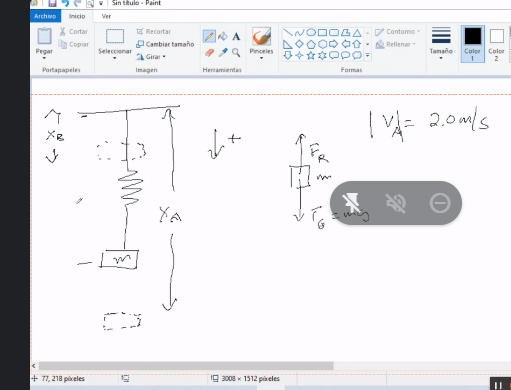 Sin título - Paint
Archivo Inicio Ver
Pegar
Cortar
Copiar
Portapapeles
Seleccionar
Recortar
Cambiar tamaño
Girar
Imagen
A
Herramientas
Pinceles
Contorno
Rellenar
Formas
Tamaño
Color 1
Color 2
XB
+
|VA| = 2.0 m/s
FR
m
XA
FG = mg
m
77, 218 píxeles
3008 × 1512 píxeles